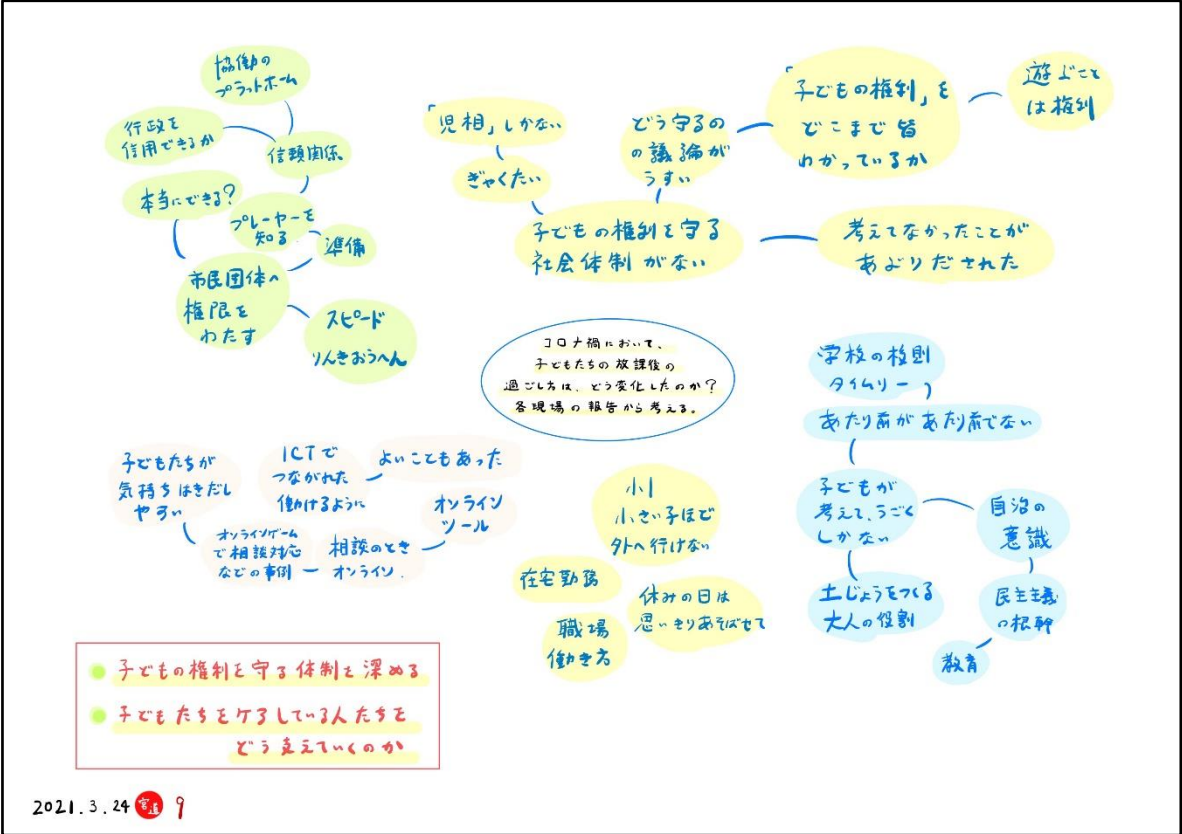 協働の
プラットホーム
行政を
信用できるか
信頼関係
本当にできる?
プレーヤーを
知る
準備
市民団体へ
権限を
わたす
スピード
りんきおうへん
「児相」しかない
ぎゃくたい
どう守るの
の議論が
うすい
「子どもの権利」を
どこまで皆
わかっているか
遊ぶこと
は権利
子どもの権利を守る
社会体制がない
考えてなかったことが
あぶりだされた
コロナ禍において、
子どもたちの放課後の
過ごし方は、どう変化したのか?
各現場の報告から考える。
学校の校則
タイムリー
あたり前があたり前でない
子どもが
考えて、うごく
しかない
自治の
意識
土じょうをつくる
大人の役割
民主主義
の根幹
教育
子どもたちが
気持ちはきだし
やすい
ICTで
つながれた
働けるように
よいこともあった
オンライン
ツール
オンラインゲーム
で相談対応
などの事例
相談のとき
オンライン.
小1
小さい子ほど
外へ行けない
在宅勤務
職場
働き方
休みの日は
思いきりあそばせて
子どもの権利を守る体制を深める
子どもたちをケアしている人たちを
どう支えていくのか
2021.3.24
9